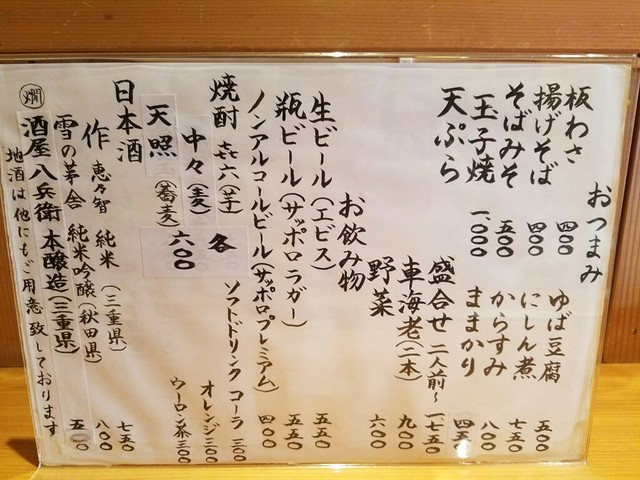 おつまみ
板わさ 四〇〇 ゆば豆腐 五〇〇
揚げそば 四〇〇 にしん煮 七五〇
そばみそ 五〇〇 からすみ 八〇〇
玉子焼 一、〇〇〇 ままかり 四五〇
天ぷら 盛合せ 二人前〜 一七五〇
車海老(二本) 九〇〇
野菜 六〇〇
お飲み物
生ビール(エビス) 五五〇
瓶ビール(サッポロラガー) 五五〇
ノンアルコールビール(サッポロプレミアム) 四〇〇
焼酎 㐂六(芋) 各 ソフトドリンク コーラ 三〇〇
中々(麦) オレンジ 三〇〇
天照(蕎麦) 六〇〇 ウーロン茶 三〇〇
日本酒
作 恵乃智 純米(三重県) 七五〇
雪の茅舎 純米吟醸(秋田県) 八〇〇
燗 酒屋八兵衛 本醸造(三重県) 五〇〇
地酒は他にもご用意致しております